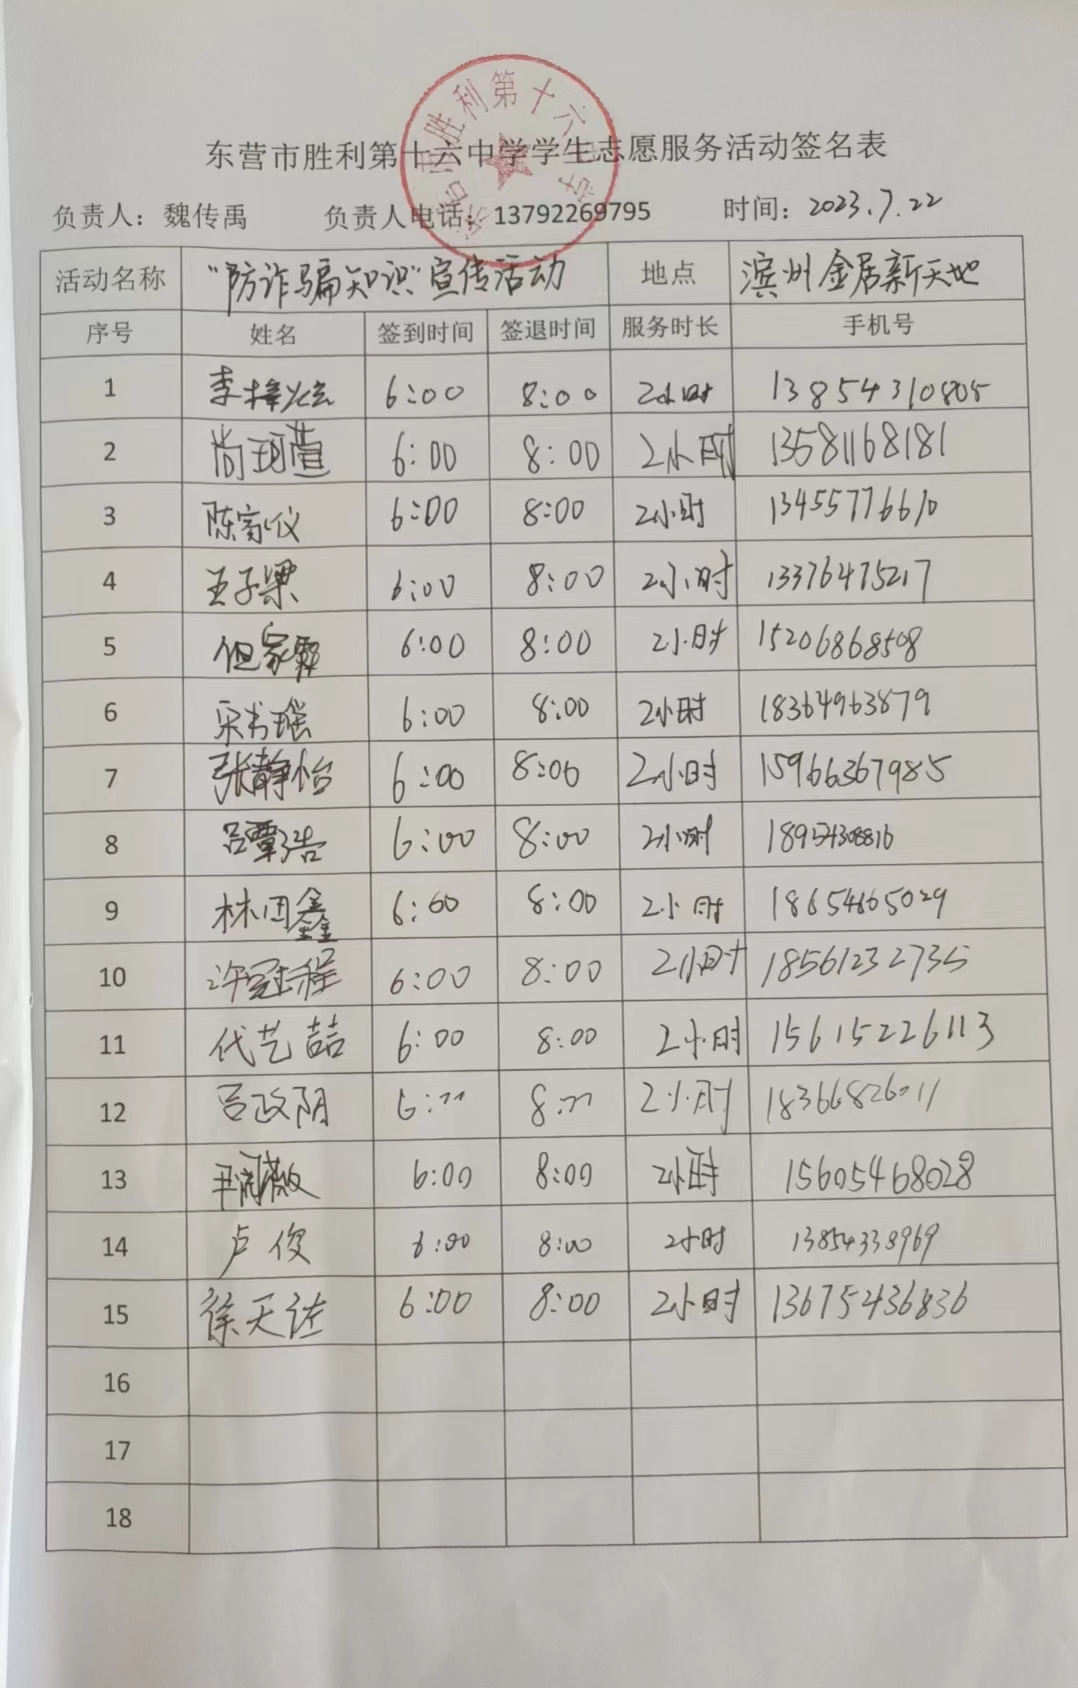 东营市胜利第十六中学学生志愿服务活动签名表
负责人：魏传禹 负责人电话：13792269795 时间：2023.7.22
活动名称 "防诈骗知识"宣传活动 地点 滨州金居新天地
序号 姓名 签到时间 签退时间 服务时长 手机号
1 李梓 6:00 8:00 2小时 13854310805
2 尚珂萱 6:00 8:00 2小时 13581168181
3 陈家仪 6:00 8:00 2小时 13455776610
4 王子梁 6:00 8:00 2小时 13376475217
5 但家 6:00 8:00 2小时 15206868508
6 宋书瑶 6:00 8:00 2小时 18364963879
7 张静怡 6:00 8:00 2小时 15966367985
8 吕覃浩 6:00 8:00 2小时
9 林田鑫 6:00 8:00 2小时 18654665029
10 许冠程 6:00 8:00 2小时 18561232735
11 代艺喆 6:00 8:00 2小时 15615226113
12 吕政阴 6:00 8:00 2小时 18366826011
13 尹 6:00 8:00 2小时 15605468028
14 卢俊 6:00 8:00 2小时 13854338969
15 徐天达 6:00 8:00 2小时 13675436836
16
17
18